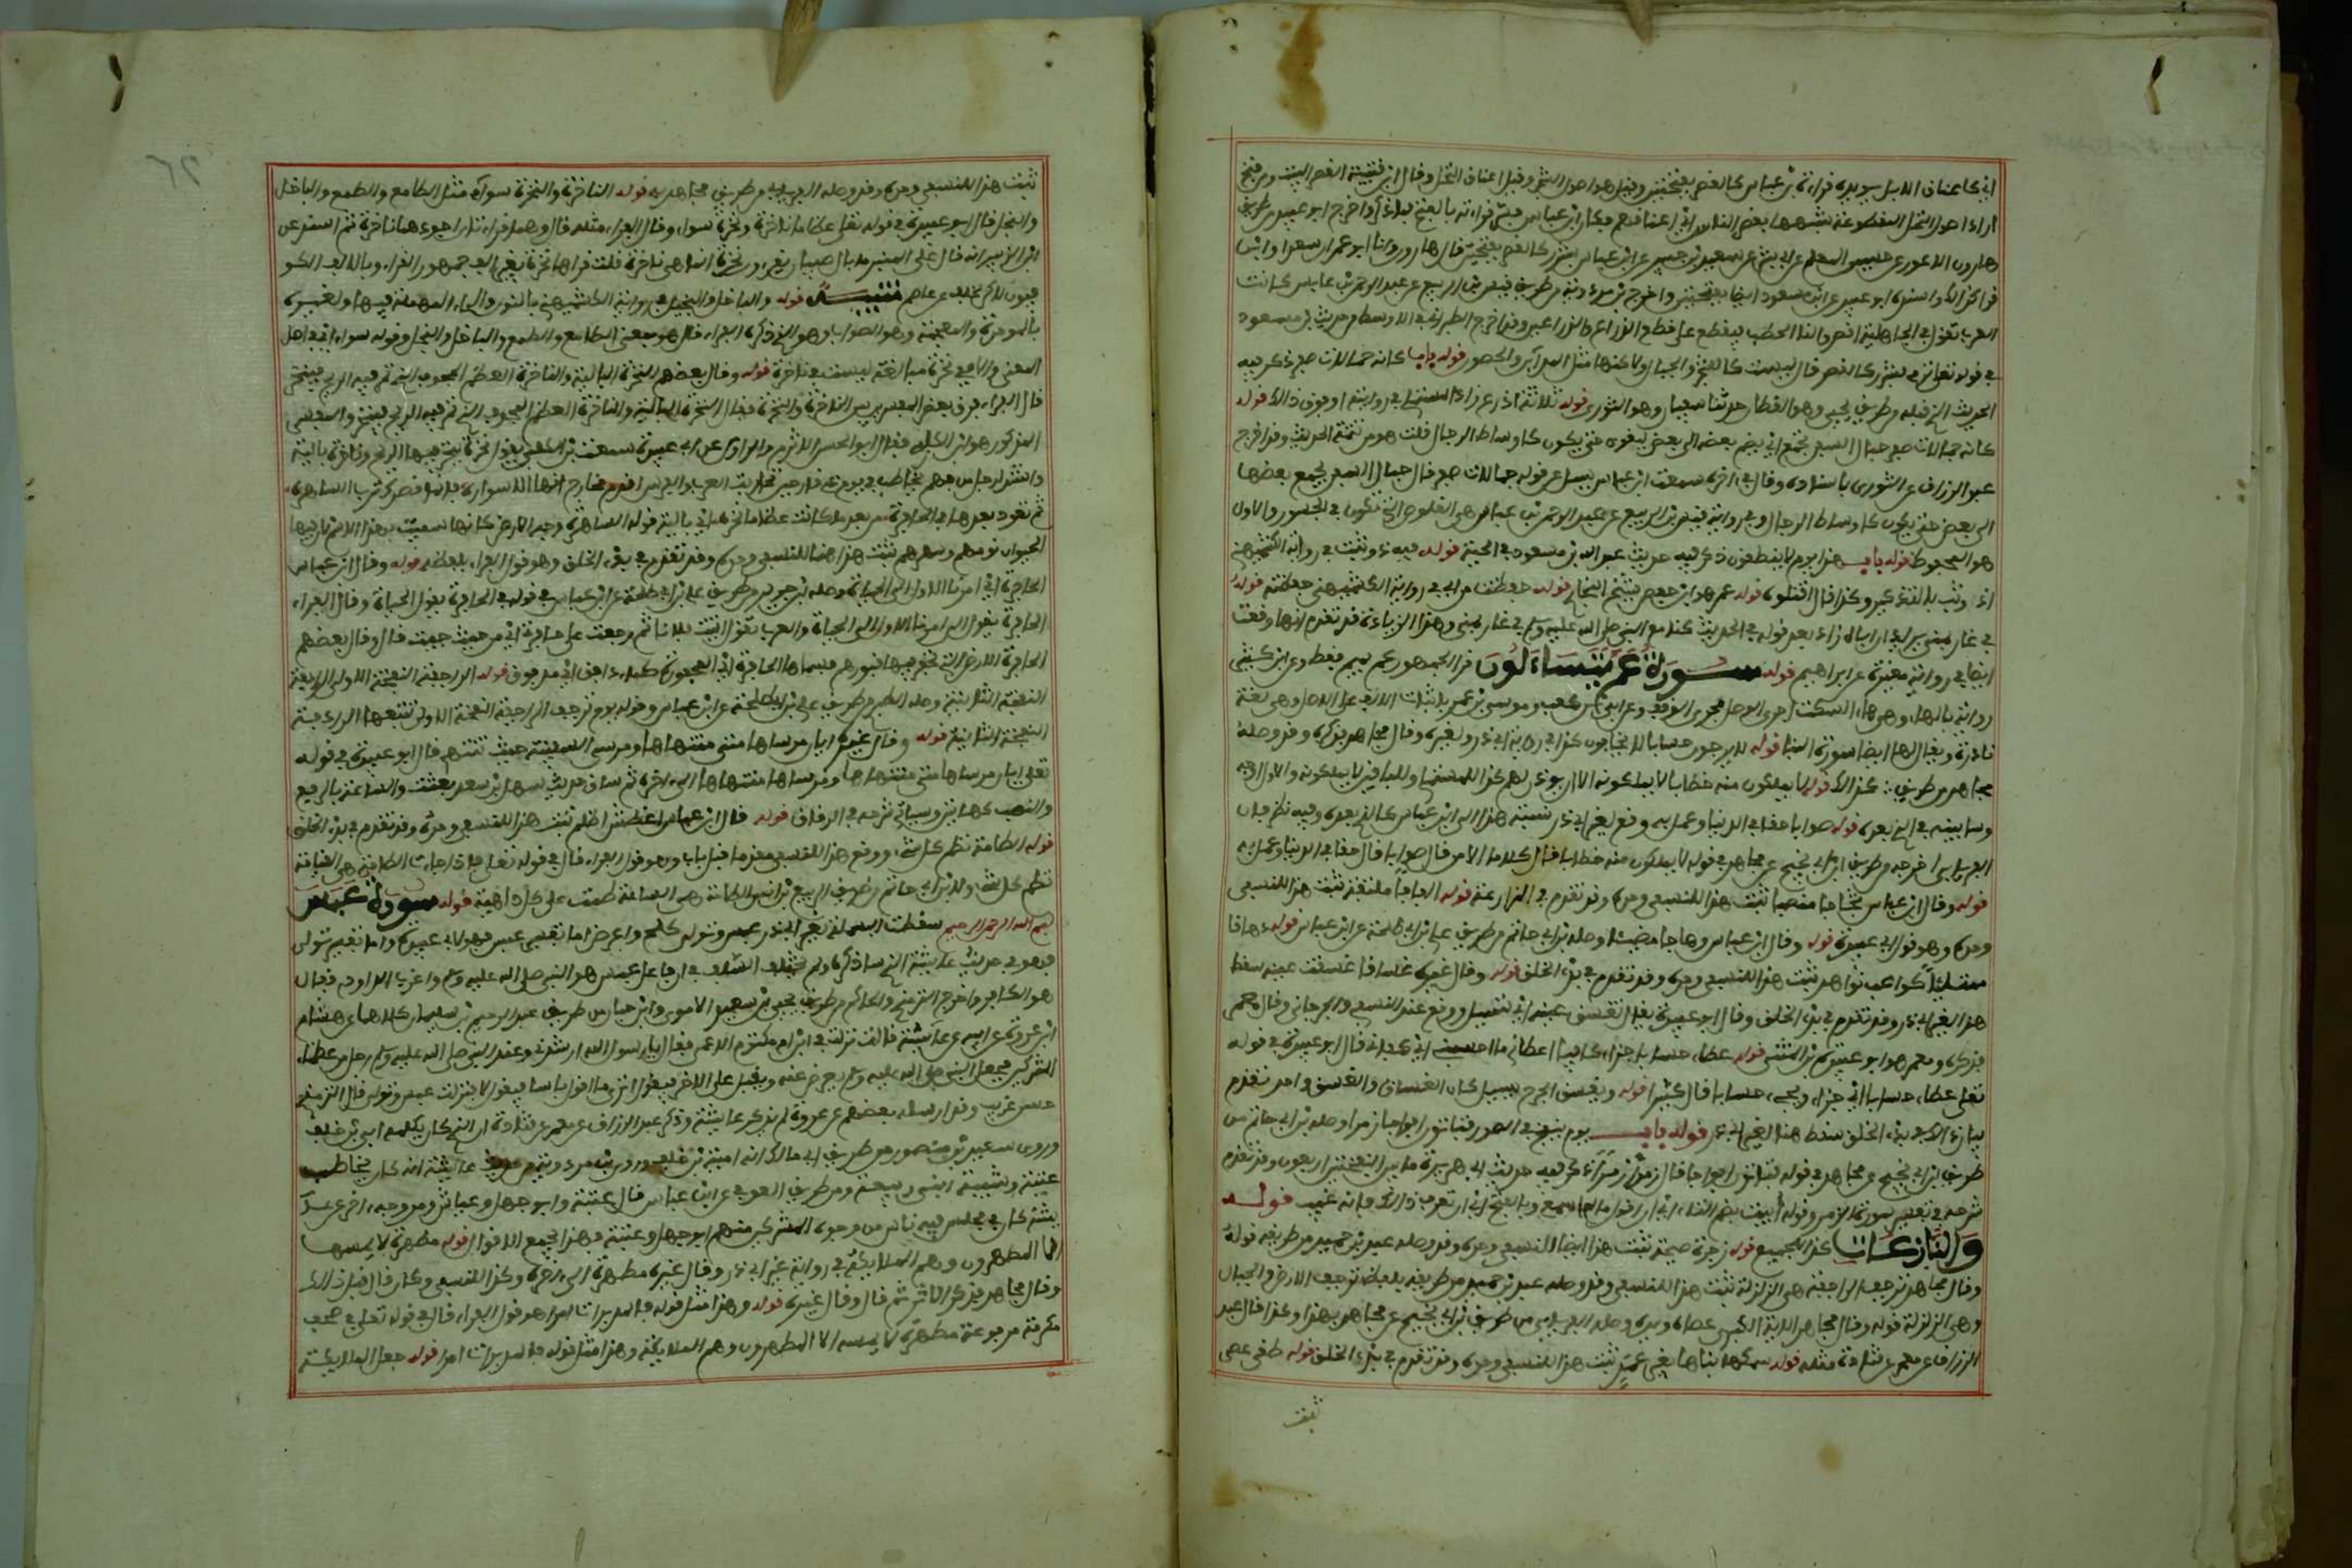 أي كأعناق الإبل ويؤيده قراءة ابن عباس كالقصر بفتحتين وقيل هو أصول الشجر وقيل أعناق النخل وقال ابن قتيبة القصر البيت ومن فتح
أراد أصول النخل المقطوعة شبهها بقصر الناس أي أعناقهم فكان ابن عباس فسر قراءته بالفتح بما ذكر وأخرج أبو عبيد من طريق
هارون الأعور عن حسين المعلم عن أبي بشر عن سعيد بن جبير عن ابن عباس بشرر كالقصر بفتحتين قال هارون وأنا أبو عمرو أن سعيدا وابن
عباس قرأا كذلك وأسنده أبو عبيد عن ابن مسعود أيضا بفتحتين وأخرج ابن مردويه من طريق قيس بن الربيع عن عبد الرحمن بن عابس كانت
العرب تقول في الجاهلية اقصروا لنا الحطب فيقطع على قدر الذراع والذراعين وقد أخرج الطبراني في الأوسط من حديث ابن مسعود
في قوله تعالى بشرر كالقصر قال ليست كالشجر والجبال ولكنها مثل المدائن والحصون قوله باب كأنه جمالات صفر ذكر فيه
الحديث الذي قبله من طريق يحيى وهو القطان حدثنا سفيان وهو الثوري قوله ثلاثة أذرع زاد المستملي في روايته أو فوق ذلك قوله
كأنه جمالات صفر حبال السفن تجمع أي يضم بعضها إلى بعض ليقوى حتى يكون كأوساط الرجال قلت هو من تتمة الحديث وقد أخرجه
عبد الرزاق عن الثوري بإسناده وقال في آخره سمعت ابن عباس يسأل عن قوله جمالات صفر قال حبال السفن يجمع بعضها
إلى بعض حتى يكون كأوساط الرجال وفي رواية قيس بن الربيع عن عبد الرحمن بن عباس هي القلوص التي تكون في الجسور والأول
هو المحفوظ قوله باب هذا يوم لا ينطقون ذكر فيه حديث عبد الله بن مسعود في الحية قوله فيه وثبت في رواية الكشميهني
إذ وثب بالتذكير وكذا قال اقتلوه قوله عمر هو ابن حفص شيخ البخاري قوله حفظته من أبي في رواية الكشميهني حفظته قوله
في غار بمنى يريد أن أباه زاد بعد قوله في الحديث كنا مع النبي صلى الله عليه وسلم في غار بمنى وهذه الزيادة قد تقدم أنها وقعت
أيضا في رواية مغيرة عن إبراهيم قوله سورة عم يتساءلون قرأ الجمهور عم بميم فقط وعن ابن كثير
رواية بالهاء وهي هاء السكت أجرى الوصل مجرى الوقف وعن أبي بن كعب وعيسى بن عمر بإثبات الألف على الأصل وهي لغة
نادرة ويقال لها أيضا سورة النبأ قوله لا يرجون حسابا لا يخافون كذا في رواية أبي ذر ولغيره وقال مجاهد فذكره وقد وصله
مجاهد من طريق: كذلك قوله لا يملكون منه خطابا لا يملكونه إلا أن يؤذن لهم كذا للمستملي وللباقين لا يملكونه والأول أوجه
وسأبينه في الذي بعده قوله صوابا حقا في الدنيا وعمل به وقع لغير أبي ذر نسبة هذا إلى ابن عباس كالذي بعده وفيه نظر فإن
الفريابي أخرجه من طريق ابن أبي نجيح عن مجاهد في قوله لا يملكون منه خطابا قال كلاما إلا من قال صوابا قال حقا في الدنيا وعمل به
قوله وقال ابن عباس ثجاجا منصبا ثبت هذا للنسفي وحده وقد تقدم في المزارعة قوله ألفافا ملتفة ثبت هذا للنسفي
وحده وهو قول أبي عبيدة قوله وقال ابن عباس وهاجا مضيئا وصله ابن أبي حاتم من طريق علي بن أبي طلحة عن ابن عباس قوله دهاقا
ممتلئا كواعب نواهد ثبت هذا للنسفي وحده وقد تقدم في بدء الخلق قوله وقال غيره غساقا غسقت عينه سقط
هذا لغير أبي ذر وقد تقدم في بدء الخلق وقال أبو عبيدة يقال تغسق عينه أي تسيل ووقع عند النسفي والجرجاني وقال معمر
فذكره ومعمر هو أبو عبيدة بن المثنى قوله عطاء حسابا جزاء كافيا أعطاني ما أحسبني أي كفاني قال أبو عبيدة في قوله
تعالى عطاء حسابا أي جزاء ويجيء حسابا قال كثيرا قوله ويغسق الجرح يسيل كأن الغساق والغسق واحد تقدم
بيان ذلك في بدء الخلق سقط هنا لغير أبي ذر قوله باب يوم ينفخ في الصور فتأتون أفواجا زمرا وصله ابن أبي حاتم من
طريق ابن أبي نجيح عن مجاهد في قوله فتأتون أفواجا قال زمرا زمرا ذكر فيه حديث أبي هريرة ما بين النفختين أربعون وقد تقدم
شرحه في تفسير سورة الزمر وقوله أبيت بضم التاء أي أن أقول ما لم أسمع وبالفتح أي أن تعرف ذلك فإنه غيب قوله
والنازعات كذا للجميع قوله زجرة صيحة ثبت هذا أيضا للنسفي وحده وقد وصله عبد بن حميد من طريقه قوله
وقال مجاهد ترجف الراجفة هي الزلزلة ثبت هذا للنسفي وقد وصله عبد بن حميد من طريقه بلفظ ترجف الأرض والجبال
وهي الزلزلة قوله وقال مجاهد الآية الكبرى عصاه ويده وصله الفريابي من طريق ابن أبي نجيح عن مجاهد بهذا وكذا قال عبد
الرزاق عن معمر عن قتادة مثله قوله سمكها بناها بغير عمد ثبت هذا للنسفي وحده وقد تقدم في بدء الخلق قوله طغى عصى
ثبت
ثبت هذا للنسفي وحده وقد وصله الفريابي من طريق مجاهد به قوله الناخرة والنخرة سواء مثل الطامع والطمع والباخل
والبخل قال أبو عبيدة في قوله تعالى عظاما ناخرة ونخرة سواء وقال الفراء مثله قال وهما قراءتان أجودهما ناخرة ثم أسند عن
ابن الزبير أنه قال على المنبر ما بال صبيان يقرءون نخرة إنما هي ناخرة قلت قرأها نخرة بغير ألف جمهور القراء وبالألف الكو
فيون لكن بخلف عن عاصم تنبيه قوله والباخل والبخيل في رواية الكشميهني بالنون والحاء المهملة فيهما ولغيره
بالموحدة والمعجمة وهو الصواب وهو الذي ذكره الفراء قال هو بمعنى الطامع والطمع والباخل والبخل وقوله سواء أي في أصل
المعنى وإلا ففي نخرة مبالغة ليست في ناخرة قوله وقال بعضهم النخرة البالية والناخرة العظم المجوف الذي تمر فيه الريح فينخر
قال الفراء فرق بعض المفسرين بين الناخرة والنخرة فقال النخرة البالية والناخرة العظم المجوف الذي تمر فيه الريح فينخر والمفسر
المذكور هو ابن الكلبي فقال أبو الحسن الأثرم الراوي عن أبي عبيدة سمعت ابن الكلبي يقول نخرة ينخر فيها الريح وناخرة بالية
وأنشد لرجل من فهم يخاطب فرسه في يوم ذي قار حين تحاربت العرب والفرس أقدم نجاح إنها الأساوره فإنما قصرك ترب الساهرة
ثم تعود بعدها في الحافرة من بعد ما كنت عظاما ناخرة أي بالية قوله الساهرة وجه الأرض كأنها سميت بهذا الاسم لأن فيها
الحيوان نومهم وسهرهم ثبت هذا هنا للنسفي وحده وقد تقدم في بدء الخلق وهو قول الفراء بلفظه قوله وقال ابن عباس
الحافرة إلى أمرنا الأول إلى الحياة وصله ابن جرير من طريق علي بن أبي طلحة عن ابن عباس في قوله في الحافرة يقول الحياة وقال الفراء
الحافرة يقول إلى أمرنا الأول إلى الحياة والعرب تقول أتيت فلانا ثم رجعت على حافرتي أي من حيث جئت قال وقال بعضهم
الحافرة الأرض التي تحفر فيها قبورهم فسماها الحافرة أي المحفورة كماء دافق أي مدفوق قوله الراجفة النفخة الأولى الرادفة
النفخة الثانية وصله الطبري من طريق علي بن أبي طلحة عن ابن عباس وقوله يوم ترجف الراجفة النفخة الأولى تتبعها الرادفة
النفخة الثانية قوله وقال غيره أيان مرساها متى منتهاها ومرسى السفينة حيث تنتهي قال أبو عبيدة في قوله
تعالى أيان مرساها متى منتهاها ومرساها منتهاها إلى آخره ثم ساق حديث سهل بن سعد بعثت والساعة بالرفع
والنصب كهاتين وسيأتي شرحه في الرقاق قوله قال ابن عباس أغطش أظلم ثبت هذا للنسفي وحده وقد تقدم في بدء الخلق
قوله الطامة تطم كل شيء ووقع هذا للنسفي مقدما قبل باب وهو قول الفراء قال في قوله تعالى فإذا جاءت الطامة هي القيامة
تطم كل شيء ولابن أبي حاتم من طريق الربيع بن أنس الطامة هي الساعة طمت على كل داهية قوله سورة عبس
بسم الله الرحمن الرحيم سقطت البسملة لغير أبي ذر عبس وتولى كلح وأعرض أما تفسير عبس فهو لأبي عبيدة وأما تفسير تولى
فهو في حديث عائشة الذي سأذكره ولم يختلف السلف في أن فاعل عبس هو النبي صلى الله عليه وسلم وأغرب الداودي فقال
هو الكافر وأخرج الترمذي والحاكم من طريق يحيى بن سعيد الأموي وابن حبان من طريق عبد الرحيم بن سليمان كلاهما عن هشام
ابن عروة عن أبيه عن عائشة قالت نزلت في ابن أم مكتوم الأعمى فقال يا رسول الله أرشدني وعند النبي صلى الله عليه وسلم رجل من عظماء
المشركين فجعل النبي صلى الله عليه وسلم يعرض عنه ويقبل على الآخر فيقول أترى بما أقول بأسا فيقول لا فنزلت عبس وتولى قال الترمذي
حسن غريب وقد أرسله بعضهم عن عروة لم يذكر عائشة وذكر عبد الرزاق عن معمر عن قتادة أن الذي كان يكلمه أبي بن خلف
وروى سعيد بن منصور من طريق أبي مالك أنه أمية بن خلف وروى ابن مردويه من حديث عائشة أنه كان يخاطب
عتبة وشيبة ابني ربيعة ومن طريق العوفي عن ابن عباس قال عتبة وأبو جهل وعباس ومن وجه آخر عن عا
يشة كان في مجلس فيه ناس من وجوه المشركين منهم أبو جهل وعتبة فهذا يجمع الأقوال قوله مطهرة لا يمسها
إلا المطهرون وهم الملائكة في رواية غير أبي ذر وقال غيره مطهرة إلى آخره وكذا للنسفي وكان قال قبل ذلك
وقال مجاهد فذكر الأثر ثم قال وقال غيره قوله وهذا مثل قوله فالمدبرات أمرا هو قول الفراء قال في قوله تعالى في صحف
مكرمة مرفوعة مطهرة لا يمسه إلا المطهرون وهم الملائكة وهذا مثل قوله فالمدبرات أمرا قوله جعل الملائكة